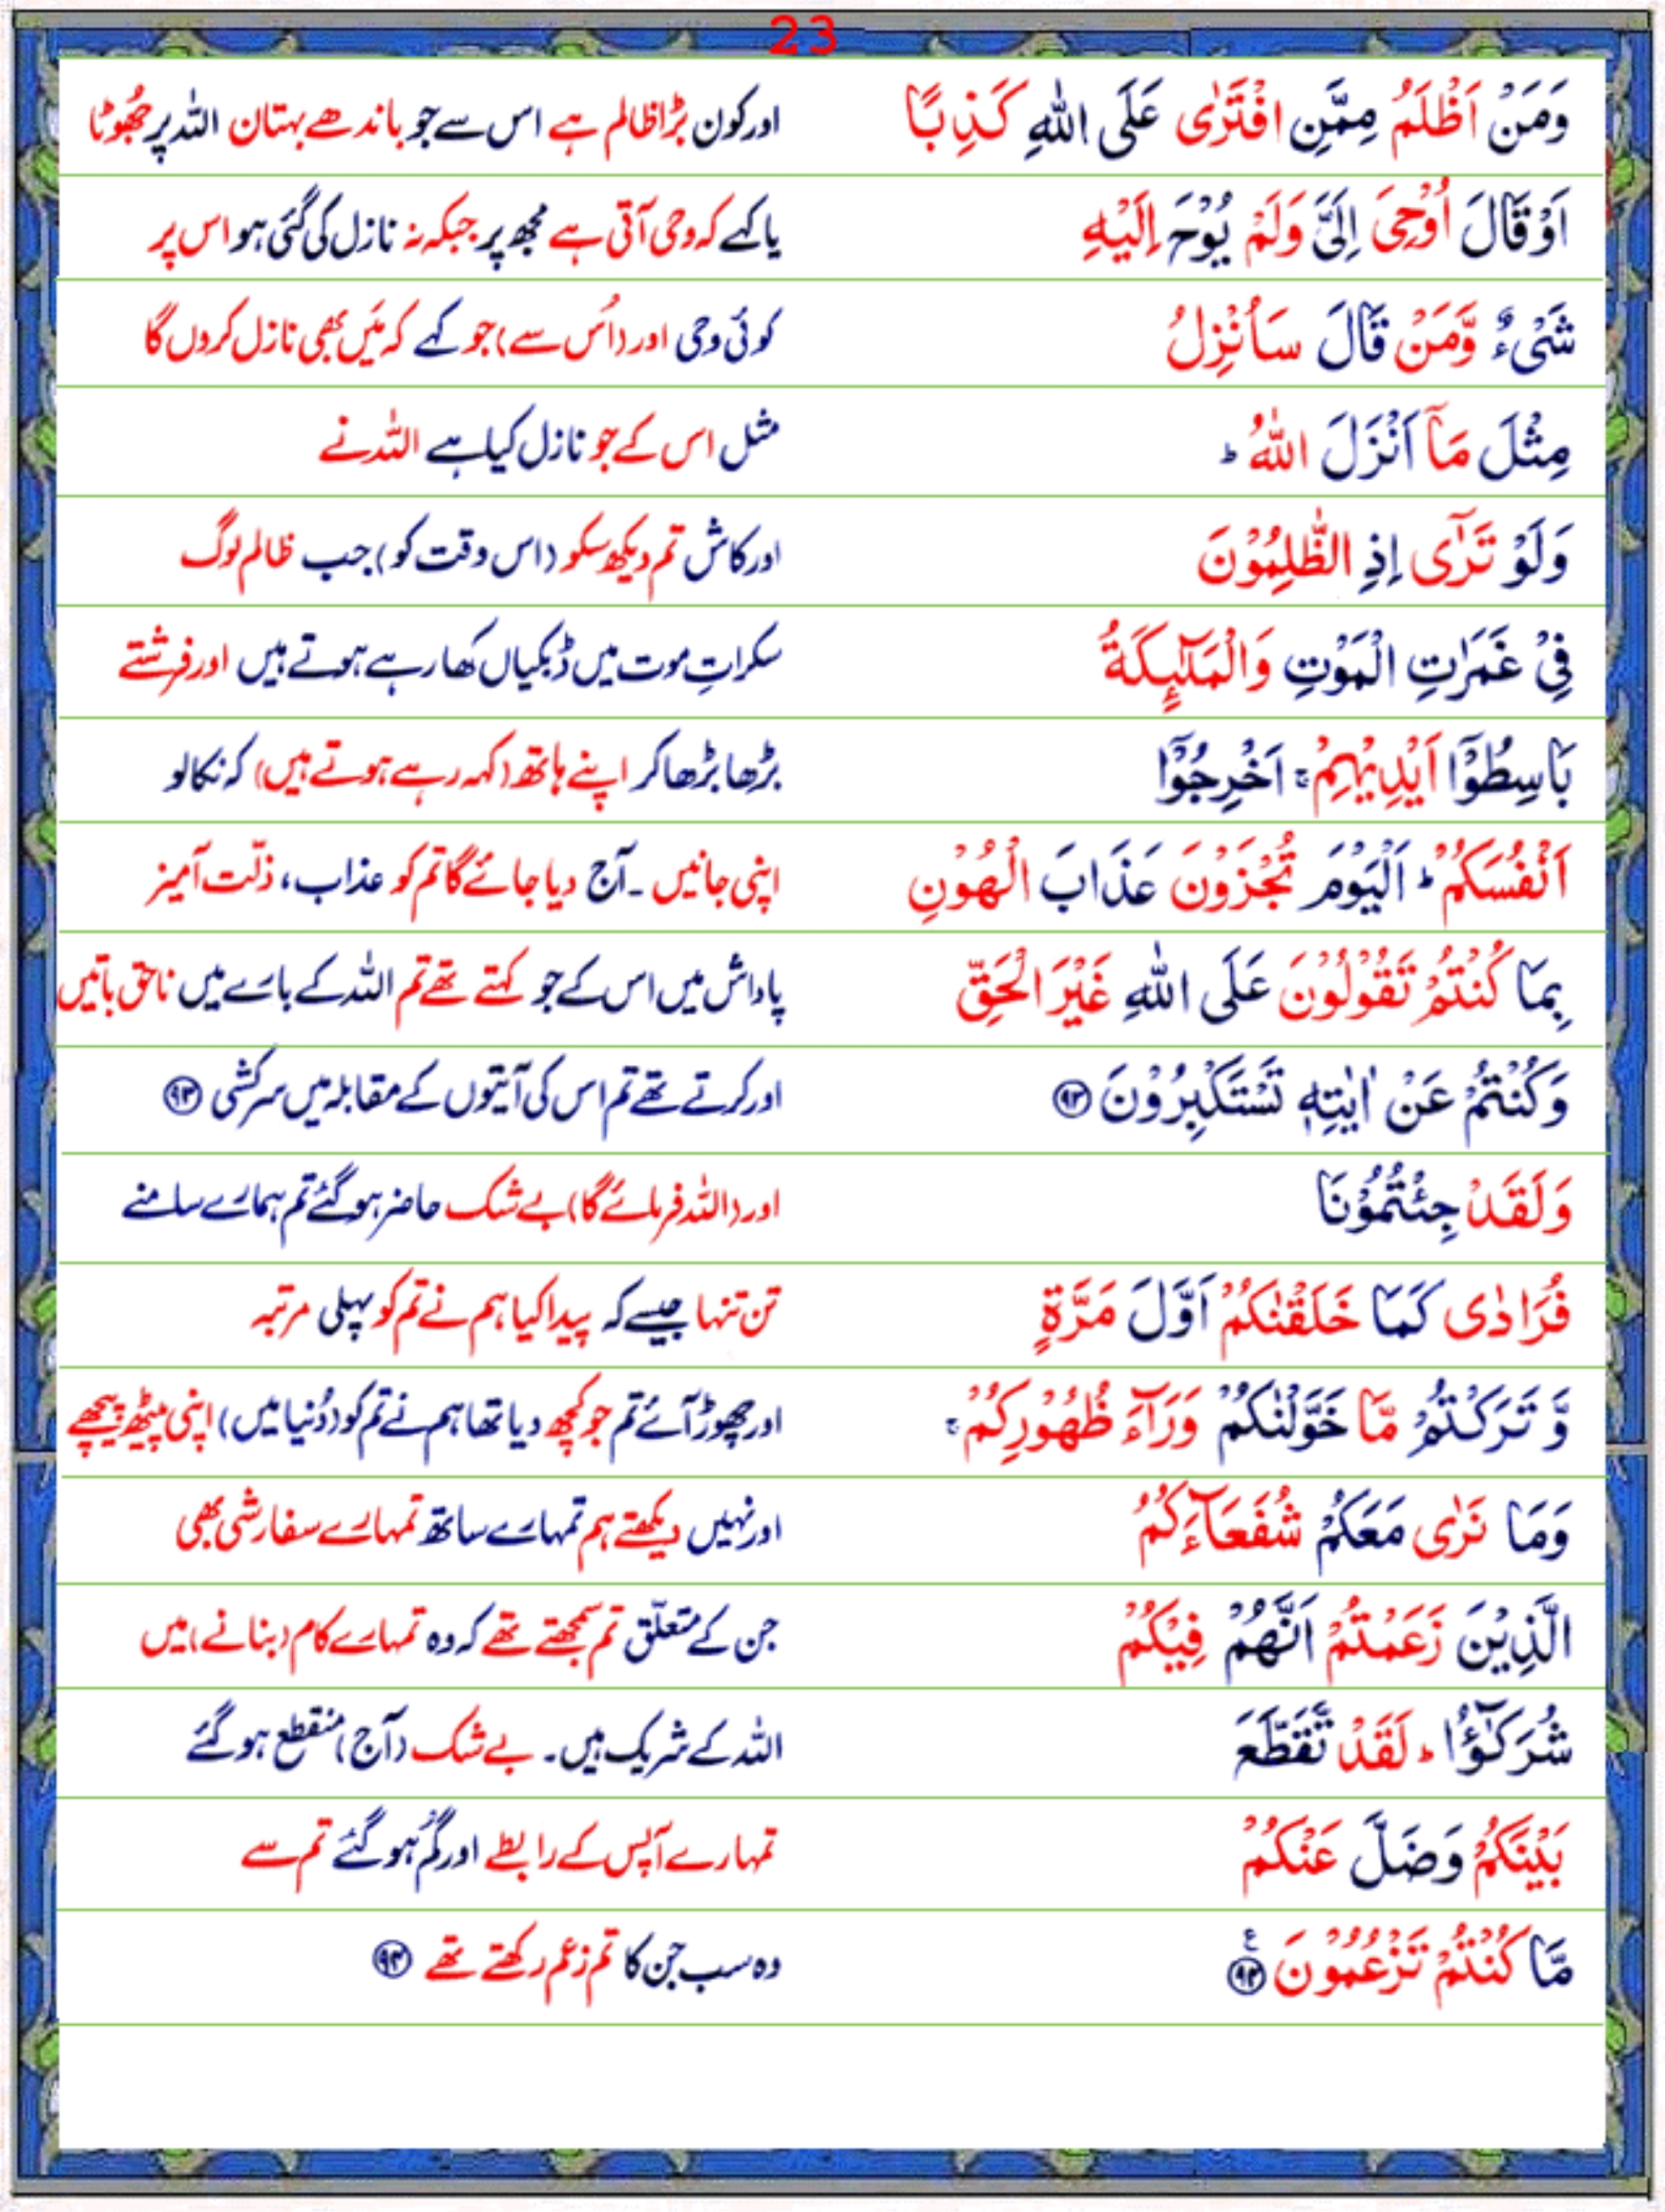 23
وَمَنْ اَظْلَمُ مِمَّنِ افْتَرٰى عَلَى اللّٰهِ كَذِبًا اور کون بڑا ظالم ہے اس سے جو باندھے بہتان اللہ پر جھُوٹا
اَوْ قَالَ اُوْحِیَ اِلَیَّ وَلَمْ یُوْحَ اِلَیْهِ یا کہے کہ وحی آتی ہے مجھ پر جبکہ نہ نازل کی گئی ہو اس پر
شَیْءٌ وَّمَنْ قَالَ سَاُنْزِلُ کوئی وحی اور (اُس سے) جو کہے کہ مَیں بھی نازل کردوں گا
مِثْلَ مَاۤ اَنْزَلَ اللّٰهُ ؕ مثل اس کے جو نازل کیا ہے اللہ نے
وَلَوْ تَرٰۤى اِذِ الظّٰلِمُوْنَ اور کاش تم دیکھ سکو (اس وقت کو) جب ظالم لوگ
فِیْ غَمَرٰتِ الْمَوْتِ وَالْمَلٰٓىِٕكَةُ سکراتِ موت میں ڈبکیاں کھا رہے ہوتے ہیں اور فرشتے
بَاسِطُوْۤا اَیْدِیْهِمْ ۚ اَخْرِجُوْۤا بڑھا بڑھا کر اپنے ہاتھ (کہہ رہے ہوتے ہیں) کہ نکالو
اَنْفُسَكُمْ ؕ اَلْیَوْمَ تُجْزَوْنَ عَذَابَ الْهُوْنِ اپنی جانیں ۔ آج دیا جائے گا تم کو عذاب، ذلّت آمیز
بِمَا كُنْتُمْ تَقُوْلُوْنَ عَلَى اللّٰهِ غَیْرَ الْحَقِّ پاداش میں اس کے جو کہتے تھے تم اللہ کے بارے میں ناحق باتیں
وَكُنْتُمْ عَنْ اٰیٰتِهٖ تَسْتَكْبِرُوْنَ ۹۳ اور کرتے تھے تم اس کی آیتوں کے مقابلہ میں سرکشی ۹۳
وَلَقَدْ جِئْتُمُوْنَا اور (اللہ فرمائے گا) بے شک حاضر ہوگئے تم ہمارے سامنے
فُرَادٰى كَمَا خَلَقْنٰكُمْ اَوَّلَ مَرَّةٍ تن تنہا جیسے کہ پیدا کیا ہم نے تم کو پہلی مرتبہ
وَّ تَرَكْتُمْ مَّا خَوَّلْنٰكُمْ وَرَآءَ ظُهُوْرِكُمْ ۚ اور چھوڑ آئے تم جو کچھ دیا تھا ہم نے تم کو (دُنیا میں) اپنی پیٹھ پیچھے
وَمَا نَرٰى مَعَكُمْ شُفَعَآءَكُمُ اور نہیں دیکھتے ہم تمہارے ساتھ تمہارے سفارشی بھی
الَّذِیْنَ زَعَمْتُمْ اَنَّهُمْ فِیْكُمْ جن کے متعلّق تم سمجھتے تھے کہ وہ تمہارے کام (بنانے) میں
شُرَكٰٓؤُا ؕ لَقَدْ تَّقَطَّعَ اللہ کے شریک ہیں۔ بے شک (آج) منقطع ہوگئے
بَیْنَكُمْ وَضَلَّ عَنْكُمْ تمہارے آپس کے رابطے اور گُم ہوگئے تم سے
مَّا كُنْتُمْ تَزْعُمُوْنَ ۹۴ ع وہ سب جن کا تم زعم رکھتے تھے ۹۴